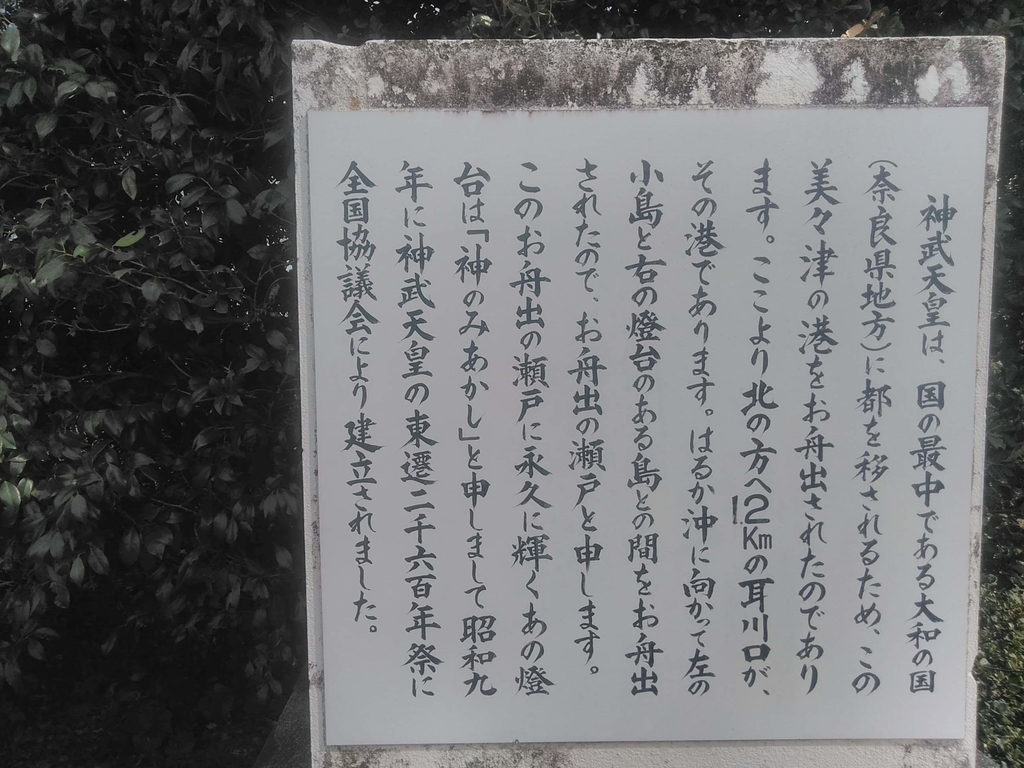 神武天皇は、国の最中である大和の国
(奈良県地方)に都を移されるため、この
美々津の港をお舟出されたのであり
ます。ここより北の方へ1.2Kmの耳川口が、
その港であります。はるか沖に向かって左の
小島と右の燈台のある島との間をお舟出
されたので、お舟出の瀬戸と申します。
このお舟出の瀬戸に永久に輝くあの燈
台は「神のみあかし」と申しまして昭和九
年に神武天皇の東遷二千六百年祭に
全国協議会により建立されました。